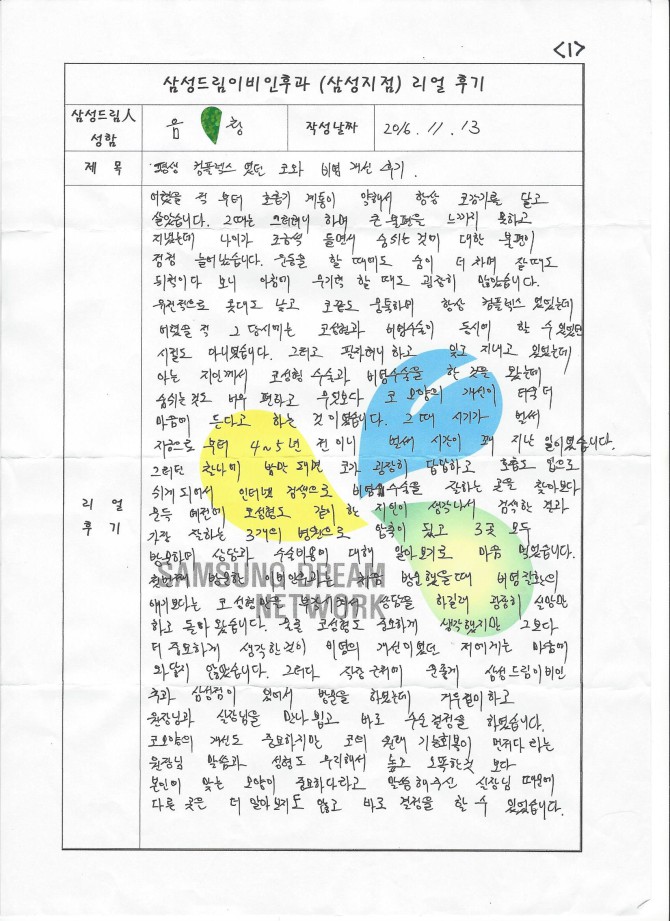 <1>
삼성드림이비인후과 (삼성지점) 리얼 후기
삼성드림人 성함
음 형
작성날짜
2016. 11. 13
제 목
평생 컴플렉스 였던 코와 비염 개선 후기.
리 얼 후 기
어렸을 적 부터 호흡기 계통이 약해서 항상 코감기를 달고
살았습니다. 그때는 그러려니 하며 큰 불편을 느끼지 못하고
지냈는데 나이가 조금씩 들면서 숨쉬는 것에 대한 불편이
점점 늘어났습니다. 운동을 할 때에도 숨이 더 차며 잘때도
뒤척이다 보니 아침에 무기력 할 때도 굉장히 많았습니다.
유전적으로 콧대도 낮고 코끝도 뭉툭하며 항상 컴플렉스 였었는데
어렸을 적 그 당시에는 코성형과 비염수술이 동시에 할 수 있었던
시절도 아니였습니다. 그러고 필자려니 하고 잊고 지내고 있었는데
아는 지인께서 코성형 수술과 비염수술을 한 것을 봤는데
숨쉬는것도 너무 편하고 무엇보다 코 모양의 개선이 더욱 더
마음에 든다고 하는 것이었습니다. 그 때 시기가 벌써
지금으로 부터 4~5년 전이니 벌써 시간이 꽤 지난 일이였습니다.
그러던 찰나에 밤만 되면 코가 굉장히 답답하고 호흡도 입으로
쉬게 되어서 인터넷 검색으로 비염수술을 잘하는 곳을 찾아보다
문득 예전에 코성형도 같이 한 지인이 생각나서 검색한 결과
가장 잘하는 3개의 병원으로 압축이 됐고 3곳 모두
방문하며 상담과 수술비용에 대해 알아보기로 마음 먹었습니다.
첫번째 방문한 이비인후과는 처음 방문했을때 비염질환의
얘기보다는 코 성형만을 부각시켜서 상담을 하길래 굉장히 실망만
하고 돌아 왔습니다. 물론 코성형도 중요하게 생각했지만 그보다
더 중요하게 생각한것이 비염의 개선이였던 저에게는 마음에
와닿지 않았습니다. 그러다 직장 근처에 운좋게 삼성드림이비인
후과 삼성점이 있어서 방문을 하였는데 거두절미하고
원장님과 실장님을 만나 뵙고 바로 수술 결정을 하였습니다.
코모양의 개선도 중요하지만 코의 원래 기능회복이 먼저다 라는
원장님 말씀과 성형도 무리해서 높고 오똑한것 보다
본인에 맞는 모양이 중요하다라고 말씀해주신 실장님 때문에
다른 곳은 더 알아보지도 않고 바로 결정을 할 수 있었습니다.
SAMSUNG DREAM
NETWORK